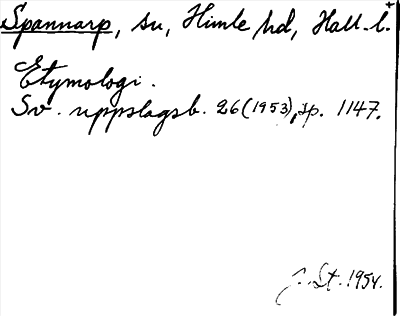 Spannarp, sn, Himle hd, Hall. l.+
Etymologi.
Sv. uppslagsb. 26 (1953), sp. 1147.
J. St. 1954.